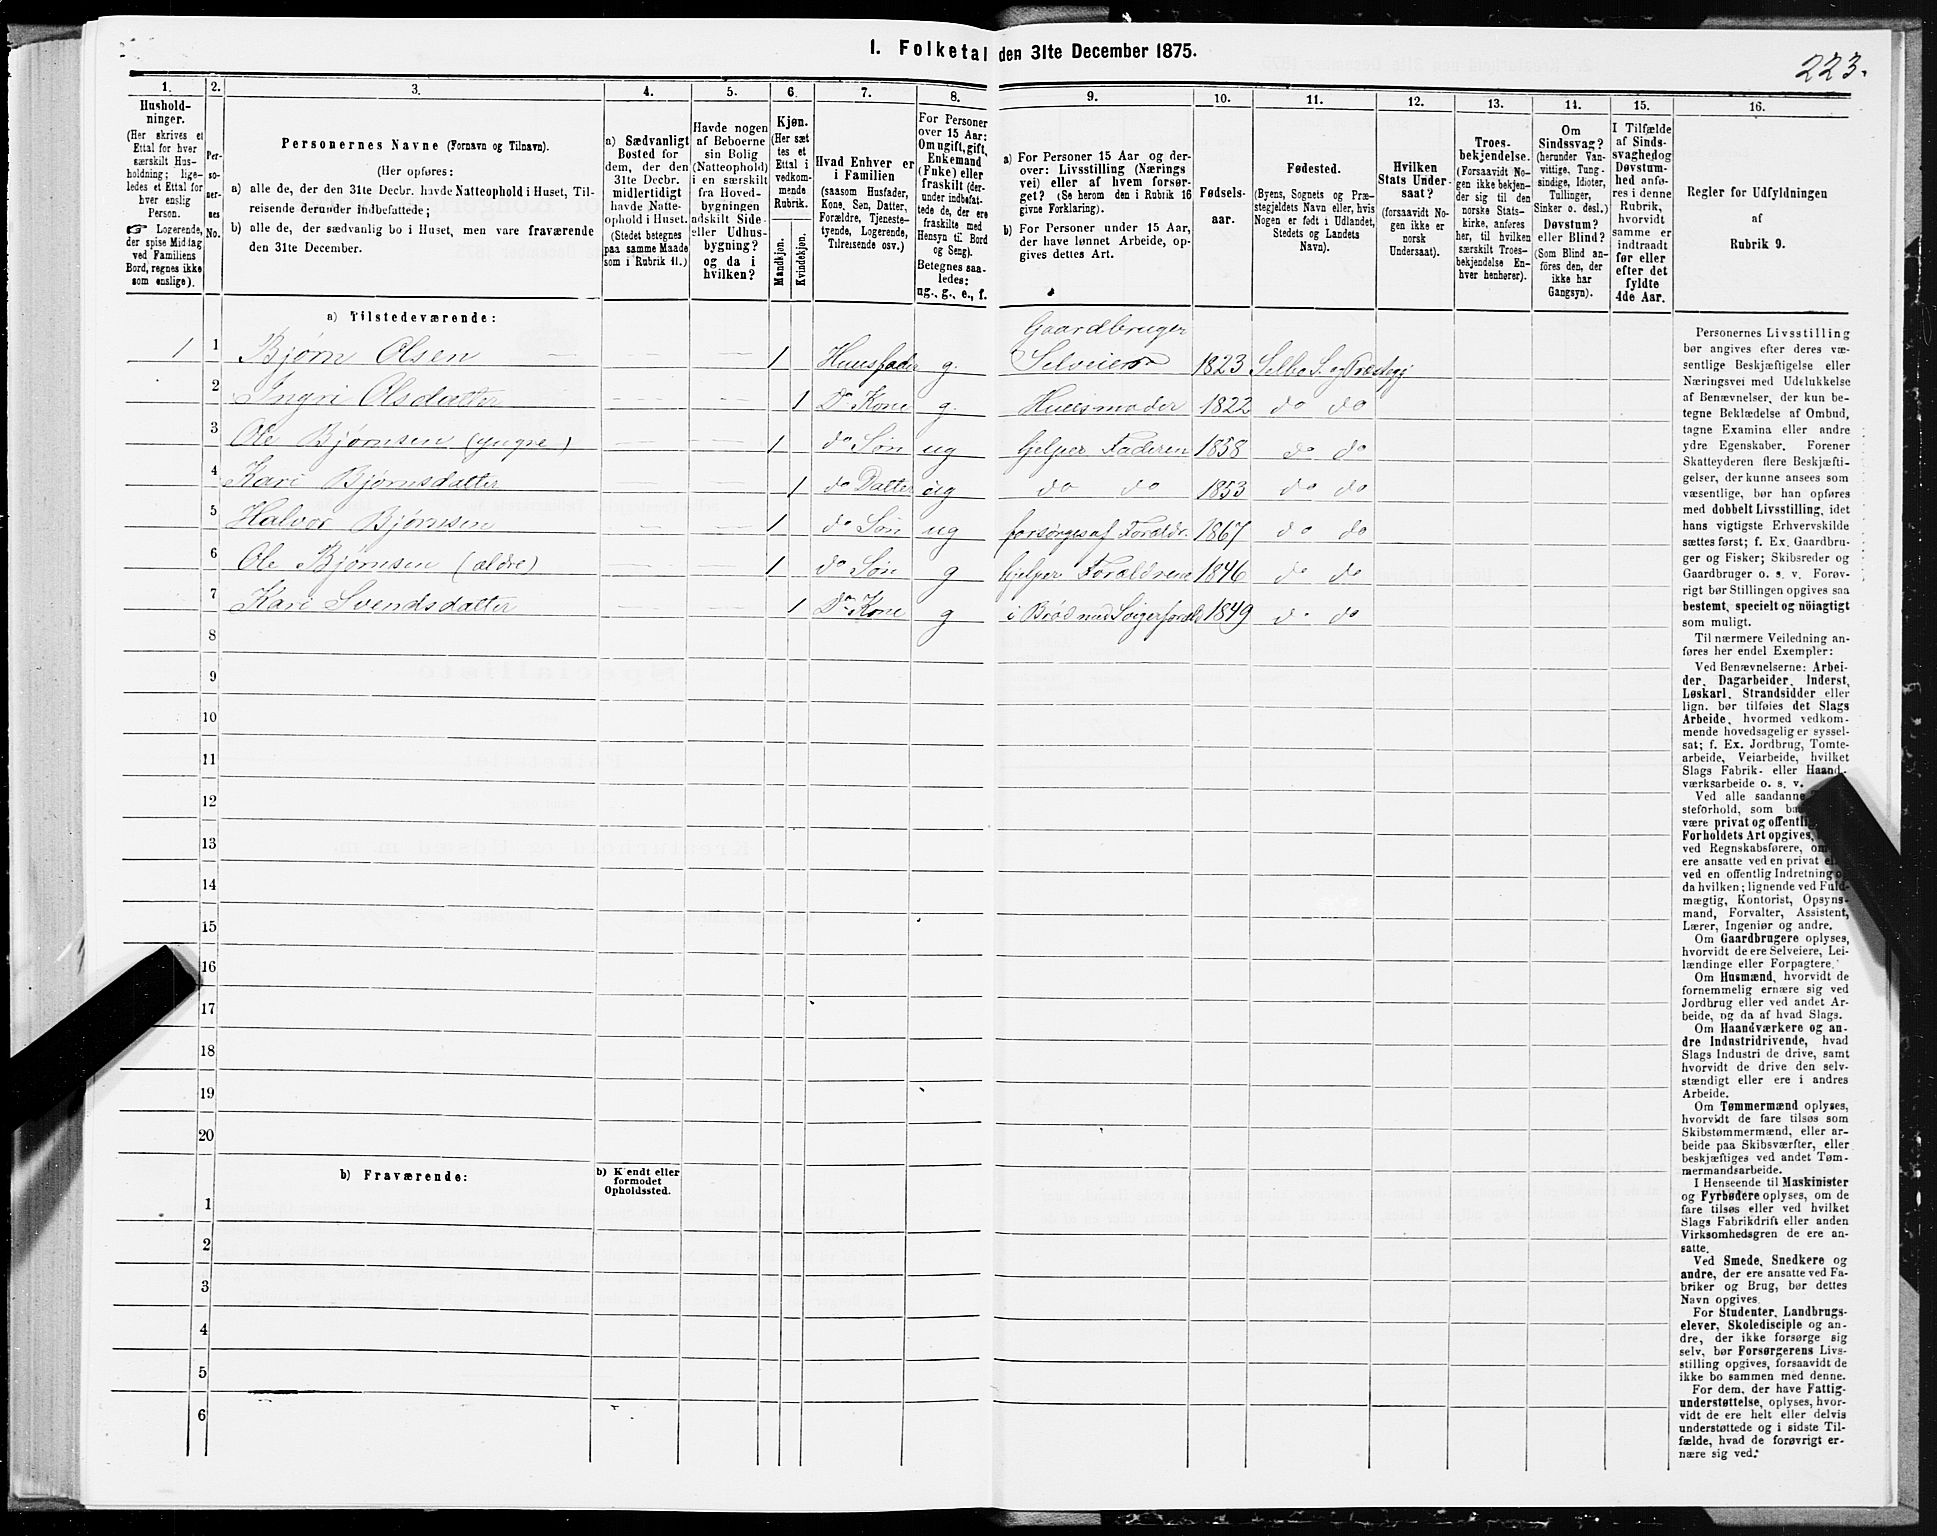 I. Folketal den 31te December 1875.
223.
1.
Hushold-
ninger.
(Her skrives et
Ettal for hver
særskilt Hus-
holdning; lige-
ledes et Ettal for
hver enslig
Person.
☞ Logerende,
der spise Middag
ved Familiens
Bord, regnes ikke
som enslige).
2.
Per-
so-
ner-
nes
No.
3.
Personernes Navne (Fornavn og Tilnavn).
(Her opføres:
a) alle de, der den 31te Decbr. havde Natteophold i Huset, Til-
reisende derunder indbefattede;
b) alle de, der sædvanlig bo i Huset, men vare fraværende
den 31te December.
4.
a) Sædvanligt
Bosted for
dem, der den
31te Decbr.
midlertidigt
havde Natte-
ophold i Huset.
(Stedet betegnes
paa samme Maade
som i Rubrik 11.)
5.
Havde nogen
af Beboerne
sin Bolig
(Natteophold)
i en særskilt
fra Hoved-
bygningen
adskilt Side-
eller Udhus-
bygning?
og da i
hvilken?
6.
Kjøn.
(Her sæt
tes et
Ettal i
vedkom-
mende
Rubrik.
Mandkjøn.
Kvindekjøn.
7.
Hvad Enhver er
i Familien
(saasom Husfader,
Kone, Søn, Datter,
Forældre, Tjeneste-
tyende, Logerende,
Tilreisende osv.)
8.
For Personer
over 15 Aar:
Om ugift, gift,
Enkemand
(Enke) eller
fraskilt (der-
under indbefat-
tede de, der ere
fraskilte med
Hensyn til Bord
og Seng).
Betegnes saa-
ledes:
ug., g., e., f.
9.
a) For Personer 15 Aar og der-
over: Livsstilling (Nærings
vei) eller af hvem forsør-
get? (Se herom den i Rubrik 16
givne Forklaring).
b) For Personer under 15 Aar,
der have lønnet Arbeide, op-
gives dettes Art.
10.
Fødsels-
aar.
11.
Fødested.
(Byens, Sognets og Præ-
stegjeldets Navn eller, hvis
Nogen er født i Udlandet,
Stedets og Landets
Navn).
12.
Hvilken
Stats Under-
saat?
(forsaavidt No-
gen ikke er
norsk
Undersaat).
13.
Troes-
bekjendelse.
(Forsaavidt No-
gen ikke bekjen-
der sig til den
norske Stats-
kirke, anføres
her, til hvilken
særskilt Troes-
bekjendelse En-
hver henhører).
14.
Om
Sindssvag?
(herunder Van-
vittige, Tung-
sindige, Idioter,
Tullinger,
Sinker o. desl.)
Døvstum?
eller Blind?
(Som Blind an-
føres den, der
ikke har
Gangsyn).
15.
I Tilfælde
af Sinds-
svaghed og
Døvstum-
hed anfø-
res i denne
Rubrik,
hvorvidt
samme er
indtraadt
før eller
efter det
fyldte
4de Aar.
16.
Regler for Udfyldningen
af
Rubrik 9.
a) Tilstedeværende:
1 1 Bjørn Olsen 1 Huusfader g. Gaardbruger Selveier 1823 Selbo S. og Præstegj
2 Ingri Olsdatter 1 Do Kone g. Huusmoder 1822 do do
3 Ole Bjørnsen (yngre) 1 do Søn ug hjelper Faderen 1858 do do
4 Kari Bjørnsdatter 1 do Datter ug do do 1853 do do
5 Halvor Bjørnsen 1 do Søn ug forsørges af Forældr. 1867 do do
6 Ole Bjørnsen (ældre) 1 do Søn g hjelper Forældrene 1846 do do
7 Kari Svendsdatter 1 Ds Kone g i Brød med Svigerforæld 1849 do do
8
9
10
11
12
13
14
15
16
17
18
19
20
b) Fraværende:
b) Kjendt eller
formodet
Opholdssted.
1
2
3
4
5
6
Personernes Livsstilling
bør angives efter deres væ-
sentlige Beskjæftigelse eller
Næringsvei med Udelukkelse
af Benævnelser, der kun be-
tegne Beklædelse af Ombud,
tagne Examina eller andre
ydre Egenskaber. Forener
Skatteyderen flere Beskjæfti-
gelser, der kunne ansees som
væsentlige, bør han opføres
med dobbelt Livsstilling, idet
hans vigtigste Erhvervskilde
sættes først; f. Ex. Gaardbru-
ger og Fisker; Skibsreder og
Gaardbruger o. s. v. Forøv-
rigt bør Stillingen opgives saa
bestemt, specielt og nöiagtigt
som muligt.
Til nærmere Veiledning an-
føres her endel Exempler:
Ved Benævnelserne: Arbei-
der, Dagarbeider, Inderst,
Løskarl, Strandsidder eller
lign. bør tilføies det Slags
Arbeide, hvormed vedkom-
mende hovedsagelig er syssel-
sat; f. Ex. Jordbrug, Tomte-
arbeide, Veiarbeide, hvilket
Slags Fabrik- eller Haand-
værksarbeide o. s. v.
Ved alle saadanne
steforhold, som
være privat og offentlig
Forholdets Art opgives,
ved Regnskabsførere, om
ere ansatte ved en privat
ved en offentlig Indretning
da hvilken; lignende ved Fuld-
mægtig, Kontorist, Opsyns-
mand, Forvalter, Assistent,
Lærer, Ingeniør og andre.
Om Gaardbrugere oplyses,
hvorvidt de ere Selveiere, Lei-
lændinge eller Forpagtere.
Om Husmænd, hvorvidt de
fornemmelig ernære sig ved
Jordbrug eller ved andet Ar-
beide, og da af hvad Slags.
Om Haandværkere og an-
dre Industridrivende, hvad
Slags Industri de drive, samt
hvorvidt de drive den selv-
stændigt eller ere i andres
Arbeide.
Om Tømmermænd oplyses,
hvorvidt de fare tilsøs som
Skibstømmermænd, eller ar-
beide paa Skibsværfter, eller
beskjæftiges ved andet Tøm-
mermandsarbeide.
I Henseende til Maskinister
og Fyrbødere oplyses, om de
fare tilsøs eller ved hvilket
Slags Fabrikdrift eller anden
Virksomhedsgren de ere an-
satte.
Ved Smede, Snedkere og
andre, der ere ansatte ved Fa-
briker og Brug, bør dettes
Navn opgives.
For Studenter, Landbrugs-
elever, Skoledisciple og an-
dre, der ikke forsørge sig
selv, bør Forsørgerens Livs-
stilling opgives, forsaavidt de
ikke bo sammen med denne.
For dem, der have Fattig-
understøttelse, oplyses, hvor-
vidt de ere helt eller delvis
understøttede og i sidste Til-
fælde, hvad de forøvrigt er-
nære sig ved.